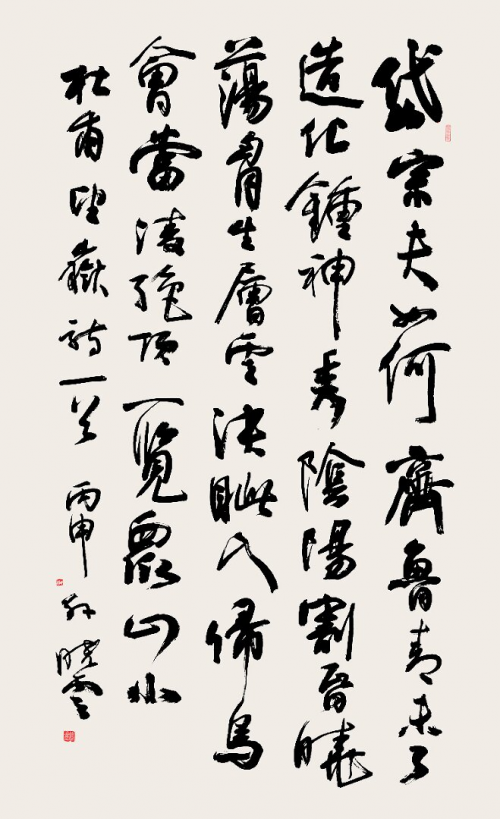 岱宗夫如何齊魯青未了
造化鍾神秀陰陽割昏曉
蕩胷生層雲決眦入歸鳥
會當凌絕頂一覽眾山小
杜甫望嶽詩一首 丙申 孫曉雲